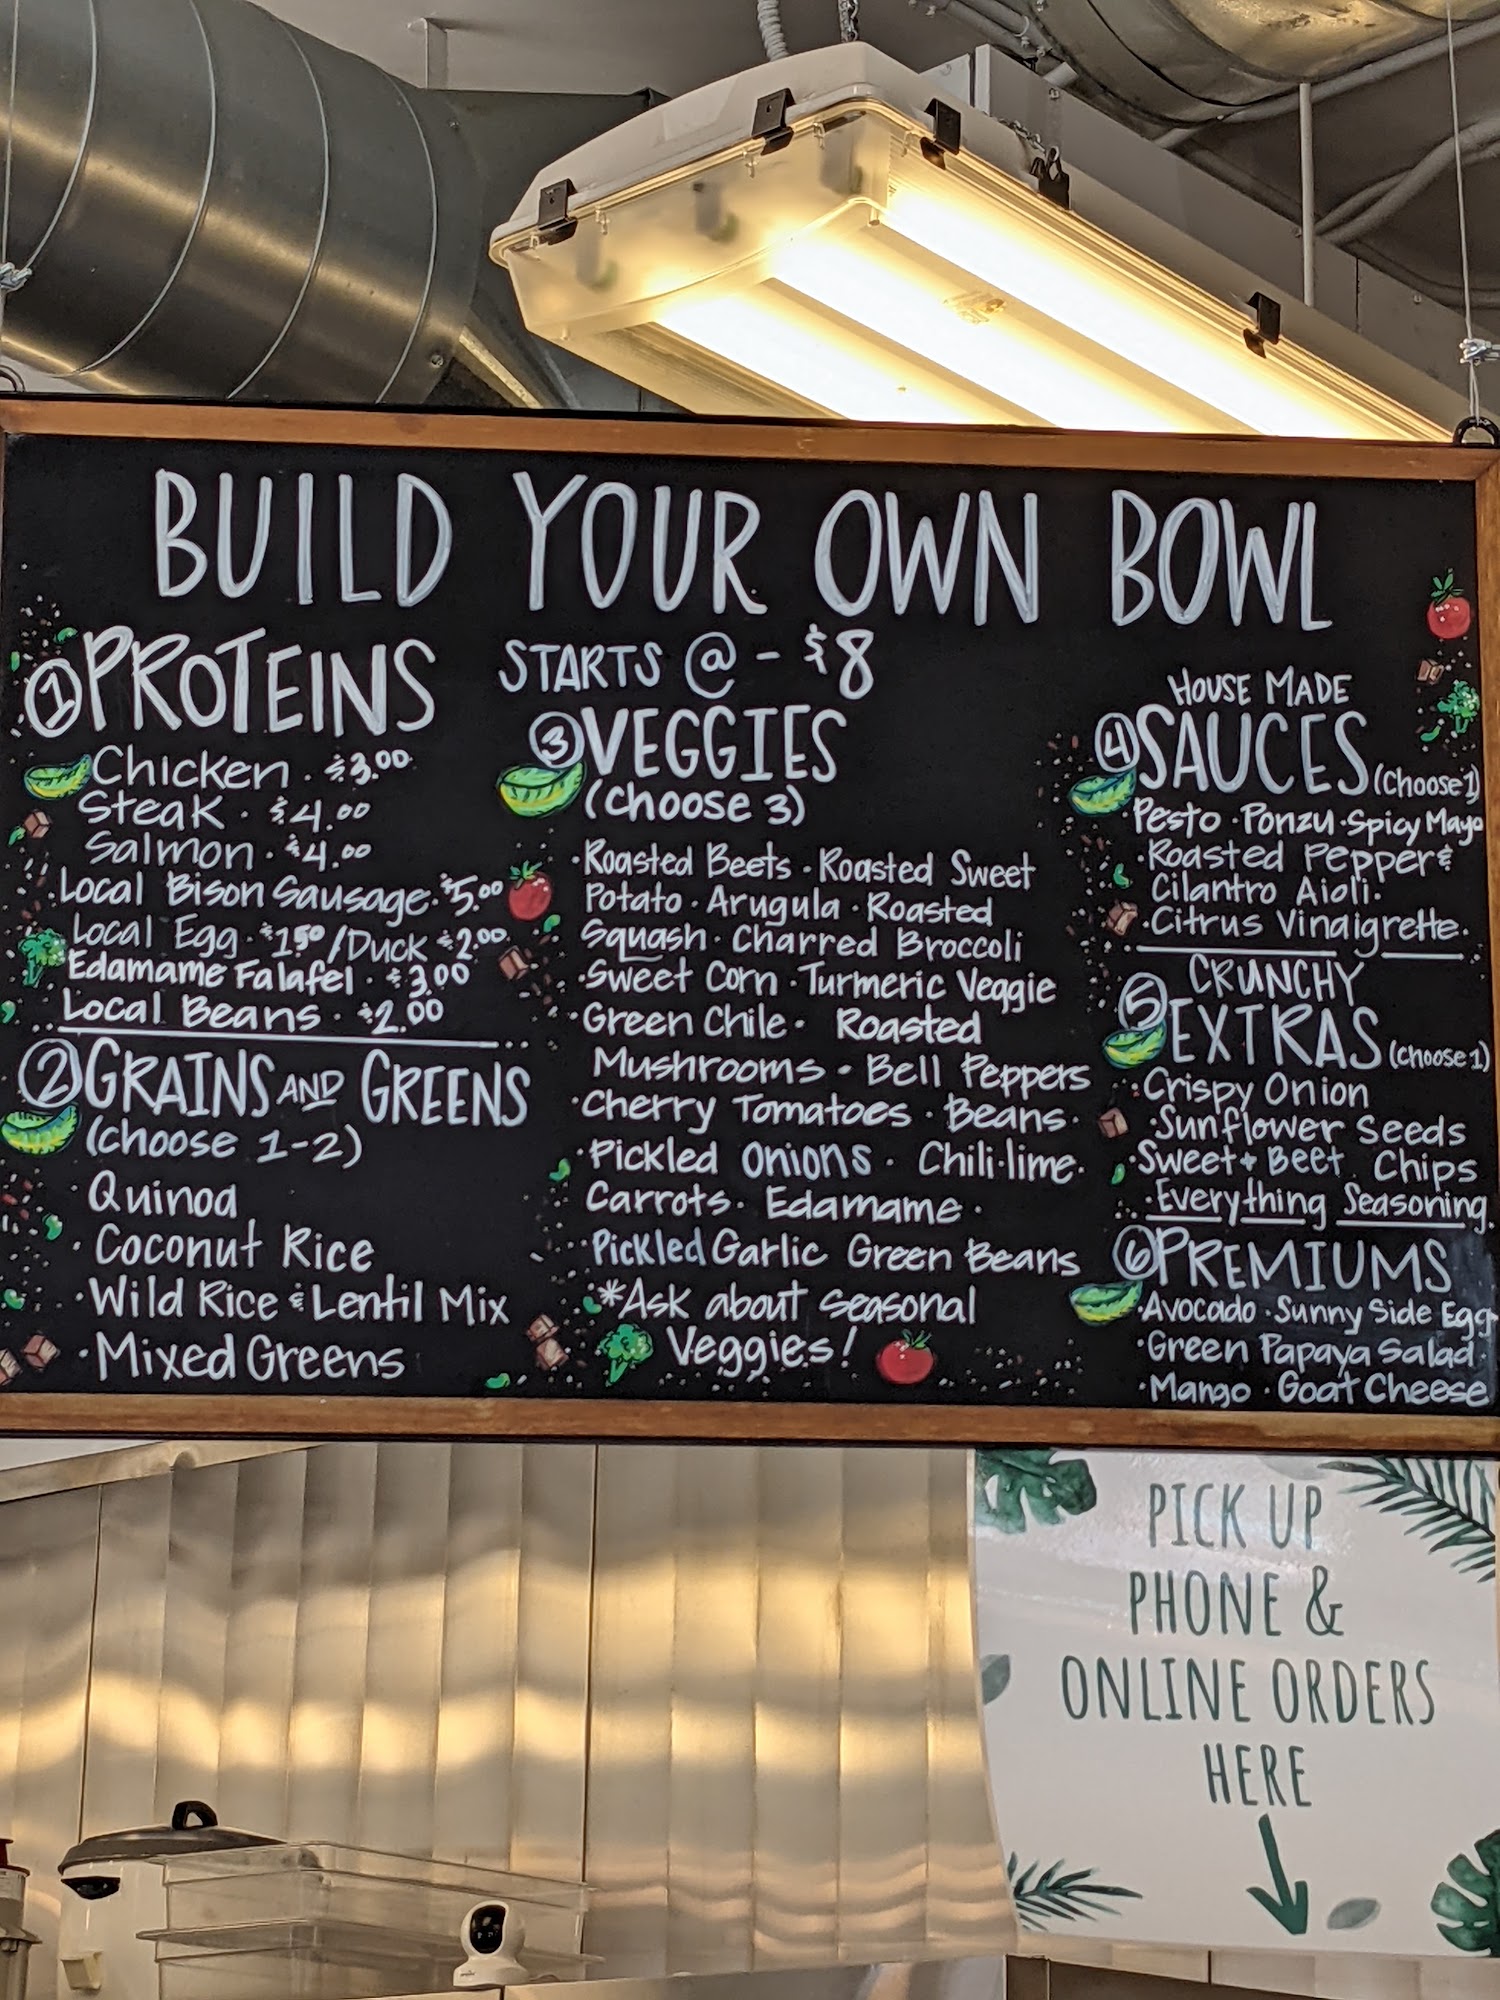 BUILD YOUR OWN BOWL
① PROTEINS
Chicken · $3.00
Steak · $4.00
Salmon · $4.00
Local Bison Sausage · $5.00
Local Egg · $1.50 / Duck $2.00
Edamame Falafel · $3.00
Local Beans · $2.00
② GRAINS AND GREENS
(choose 1-2)
· Quinoa
· Coconut Rice
· Wild Rice & Lentil Mix
· Mixed Greens
STARTS @ - $8
③ VEGGIES
(choose 3)
· Roasted Beets · Roasted Sweet
Potato · Arugula · Roasted
Squash · Charred Broccoli
· Sweet Corn · Turmeric Veggie
· Green Chile · Roasted
Mushrooms · Bell Peppers
· Cherry Tomatoes · Beans ·
· Pickled Onions · Chili·lime ·
Carrots · Edamame ·
· Pickled Garlic Green Beans
*Ask about seasonal
Veggies!
HOUSE MADE
④ SAUCES (choose 1)
Pesto · Ponzu · Spicy Mayo
· Roasted Pepper &
Cilantro Aioli ·
· Citrus Vinaigrette ·
CRUNCHY
⑤ EXTRAS (choose 1)
· Crispy Onion
· Sunflower Seeds
· Sweet + Beet Chips
· Everything Seasoning
⑥ PREMIUMS
· Avocado · Sunny Side Egg
· Green Papaya Salad ·
· Mango · Goat Cheese
PICK UP
PHONE &
ONLINE ORDERS
HERE